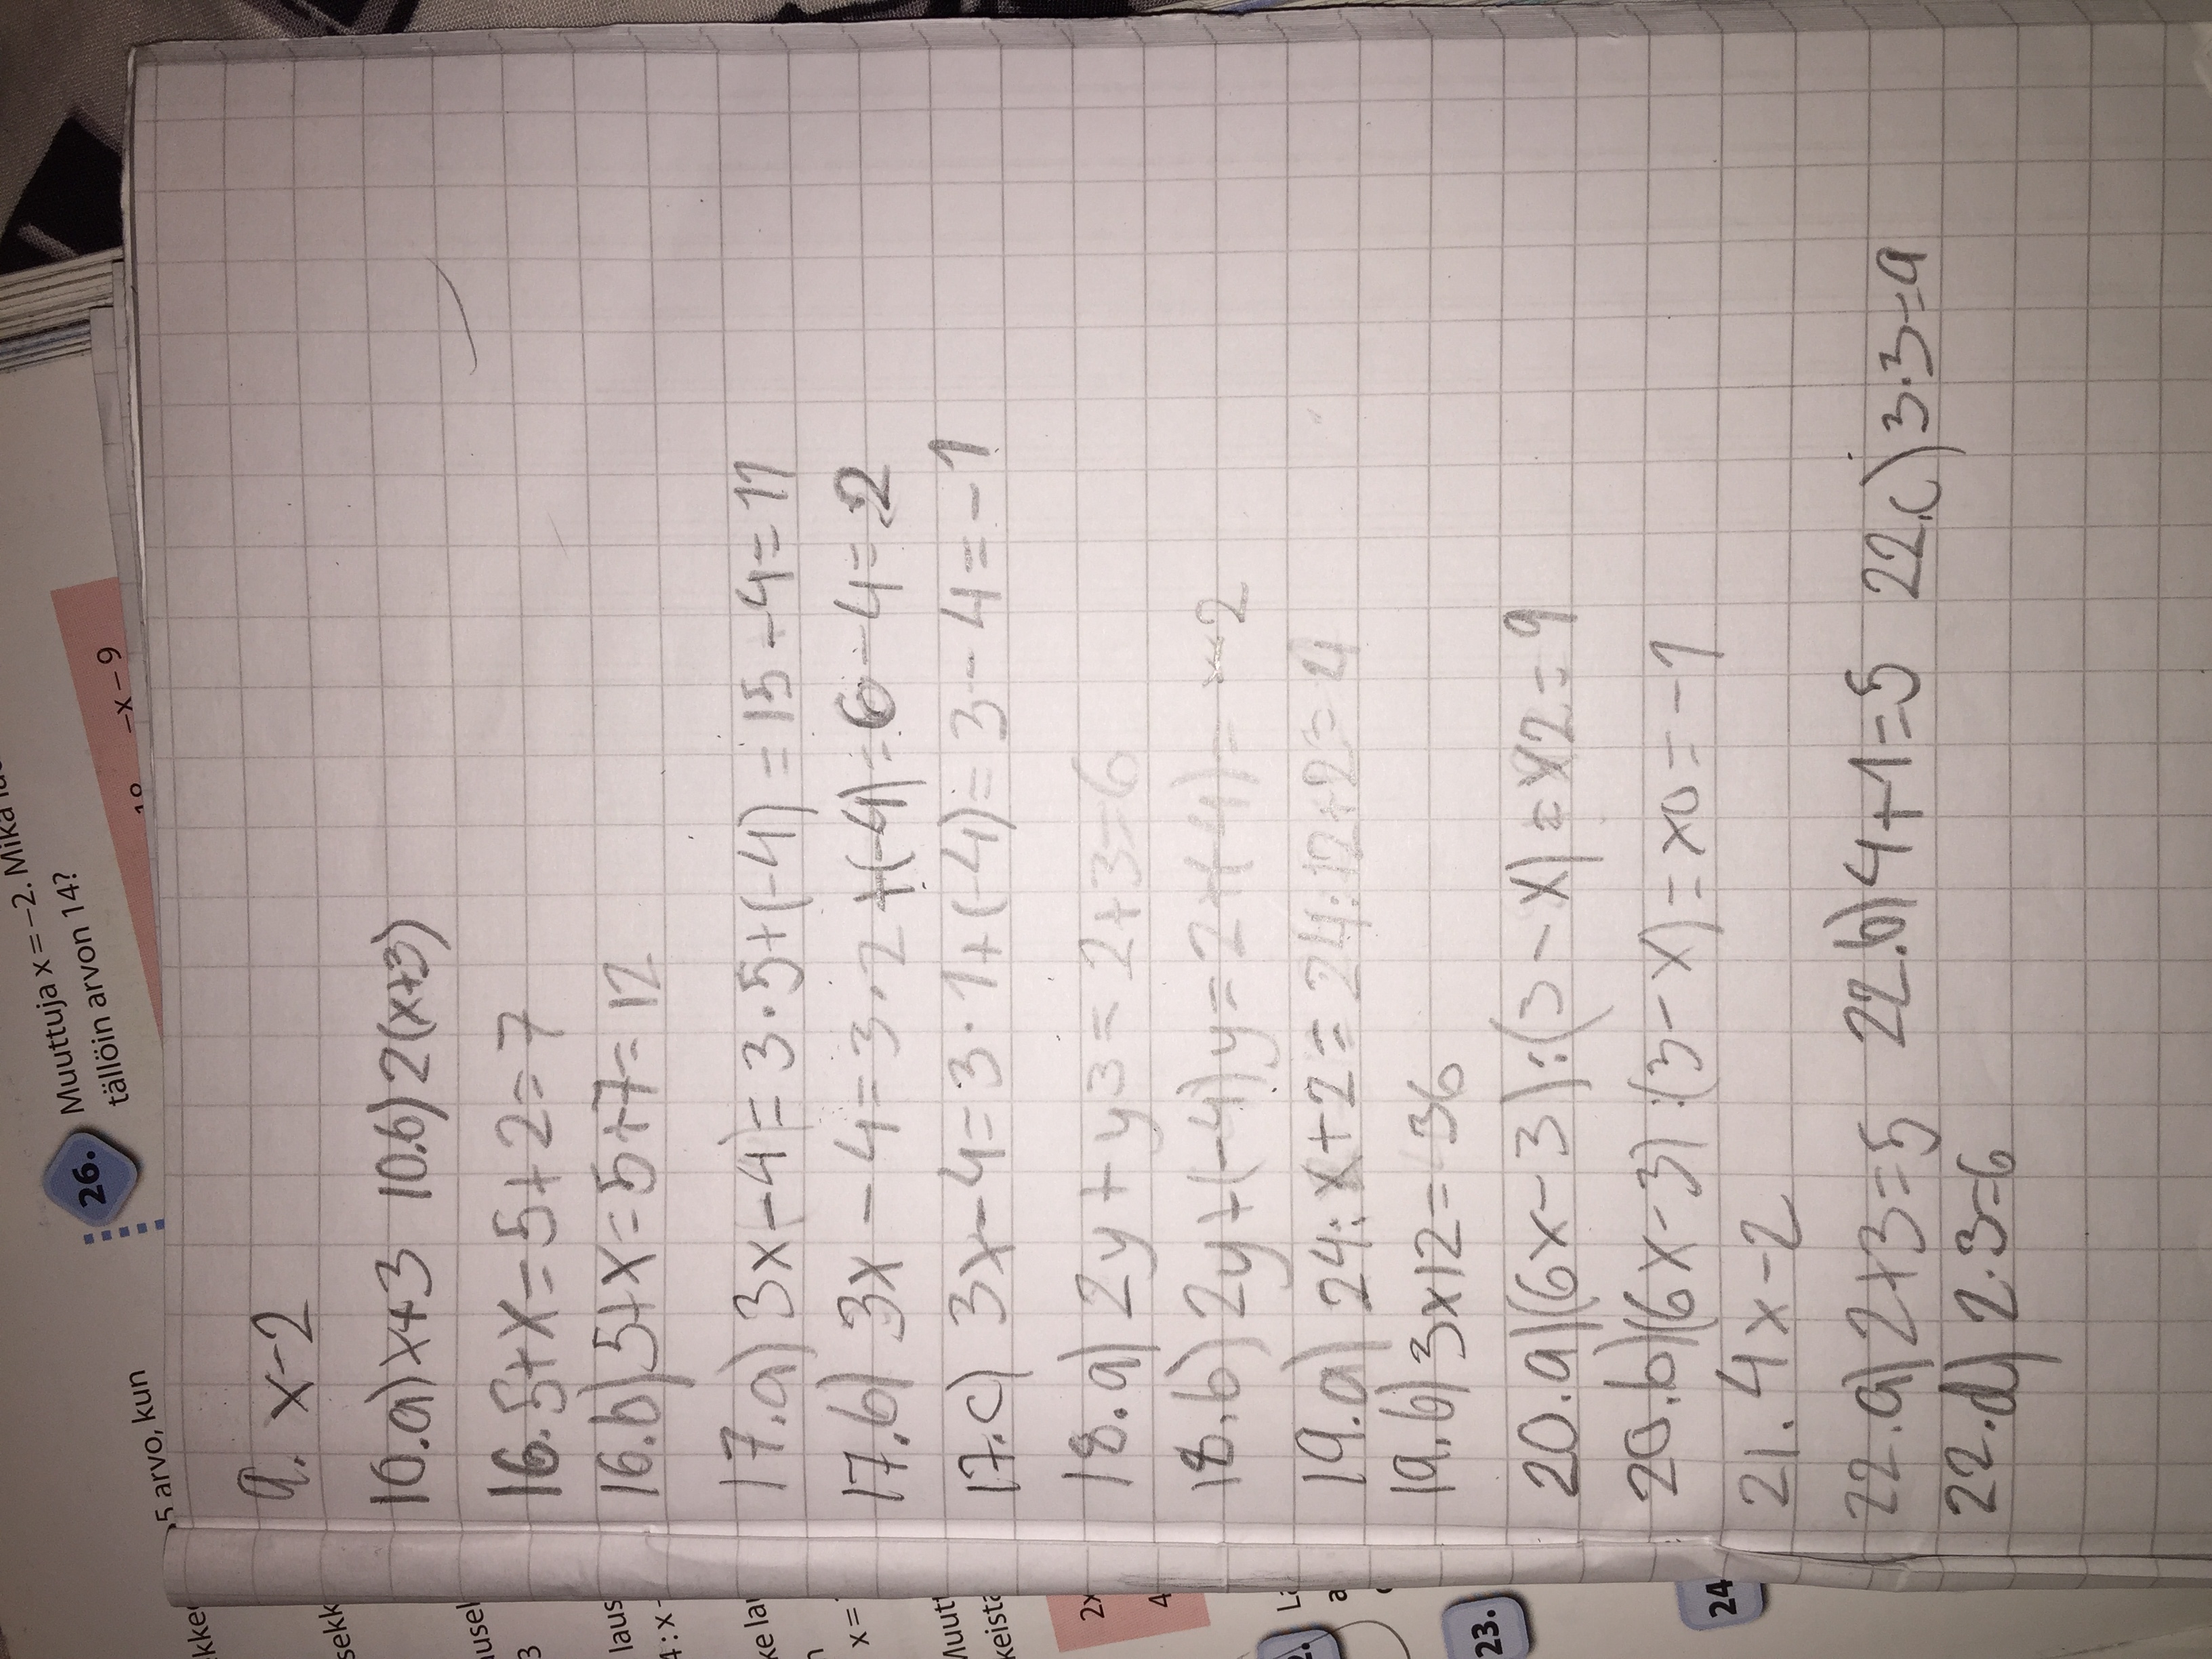 9. x-2
10.a) x+3 10.b) 2(x+3)
16. 5+x=5+2=7
16.b) 5+x=5+7=12
17.a) 3x-4=3·5+(-4)=15-4=11
17.b) 3x-4=3·2+(-4)=6-4=2
17.c) 3x-4=3·1+(-4)=3-4=-1
18.a) 2y+y3=2+3=6
18.b) 2y+(-4)y=2+(-4)=-2
19.a) 24:x+2=24:12+2=4
19.b) 3x12=36
20.a) (6x-3):(3-x)=x2=9
20.b) (6x-3):(3-x)=x0=-1
21. 4x-2
22.a) 2+3=5 22.b) 4+1=5 22.c) 3·3=9
22.d) 2·3=6
26. Muuttuja x = −2. Mikä
tällöin arvon 14?
−x − 9
5 arvo, kun
3
laus
4 : x -
x =
2x
4
23.
24